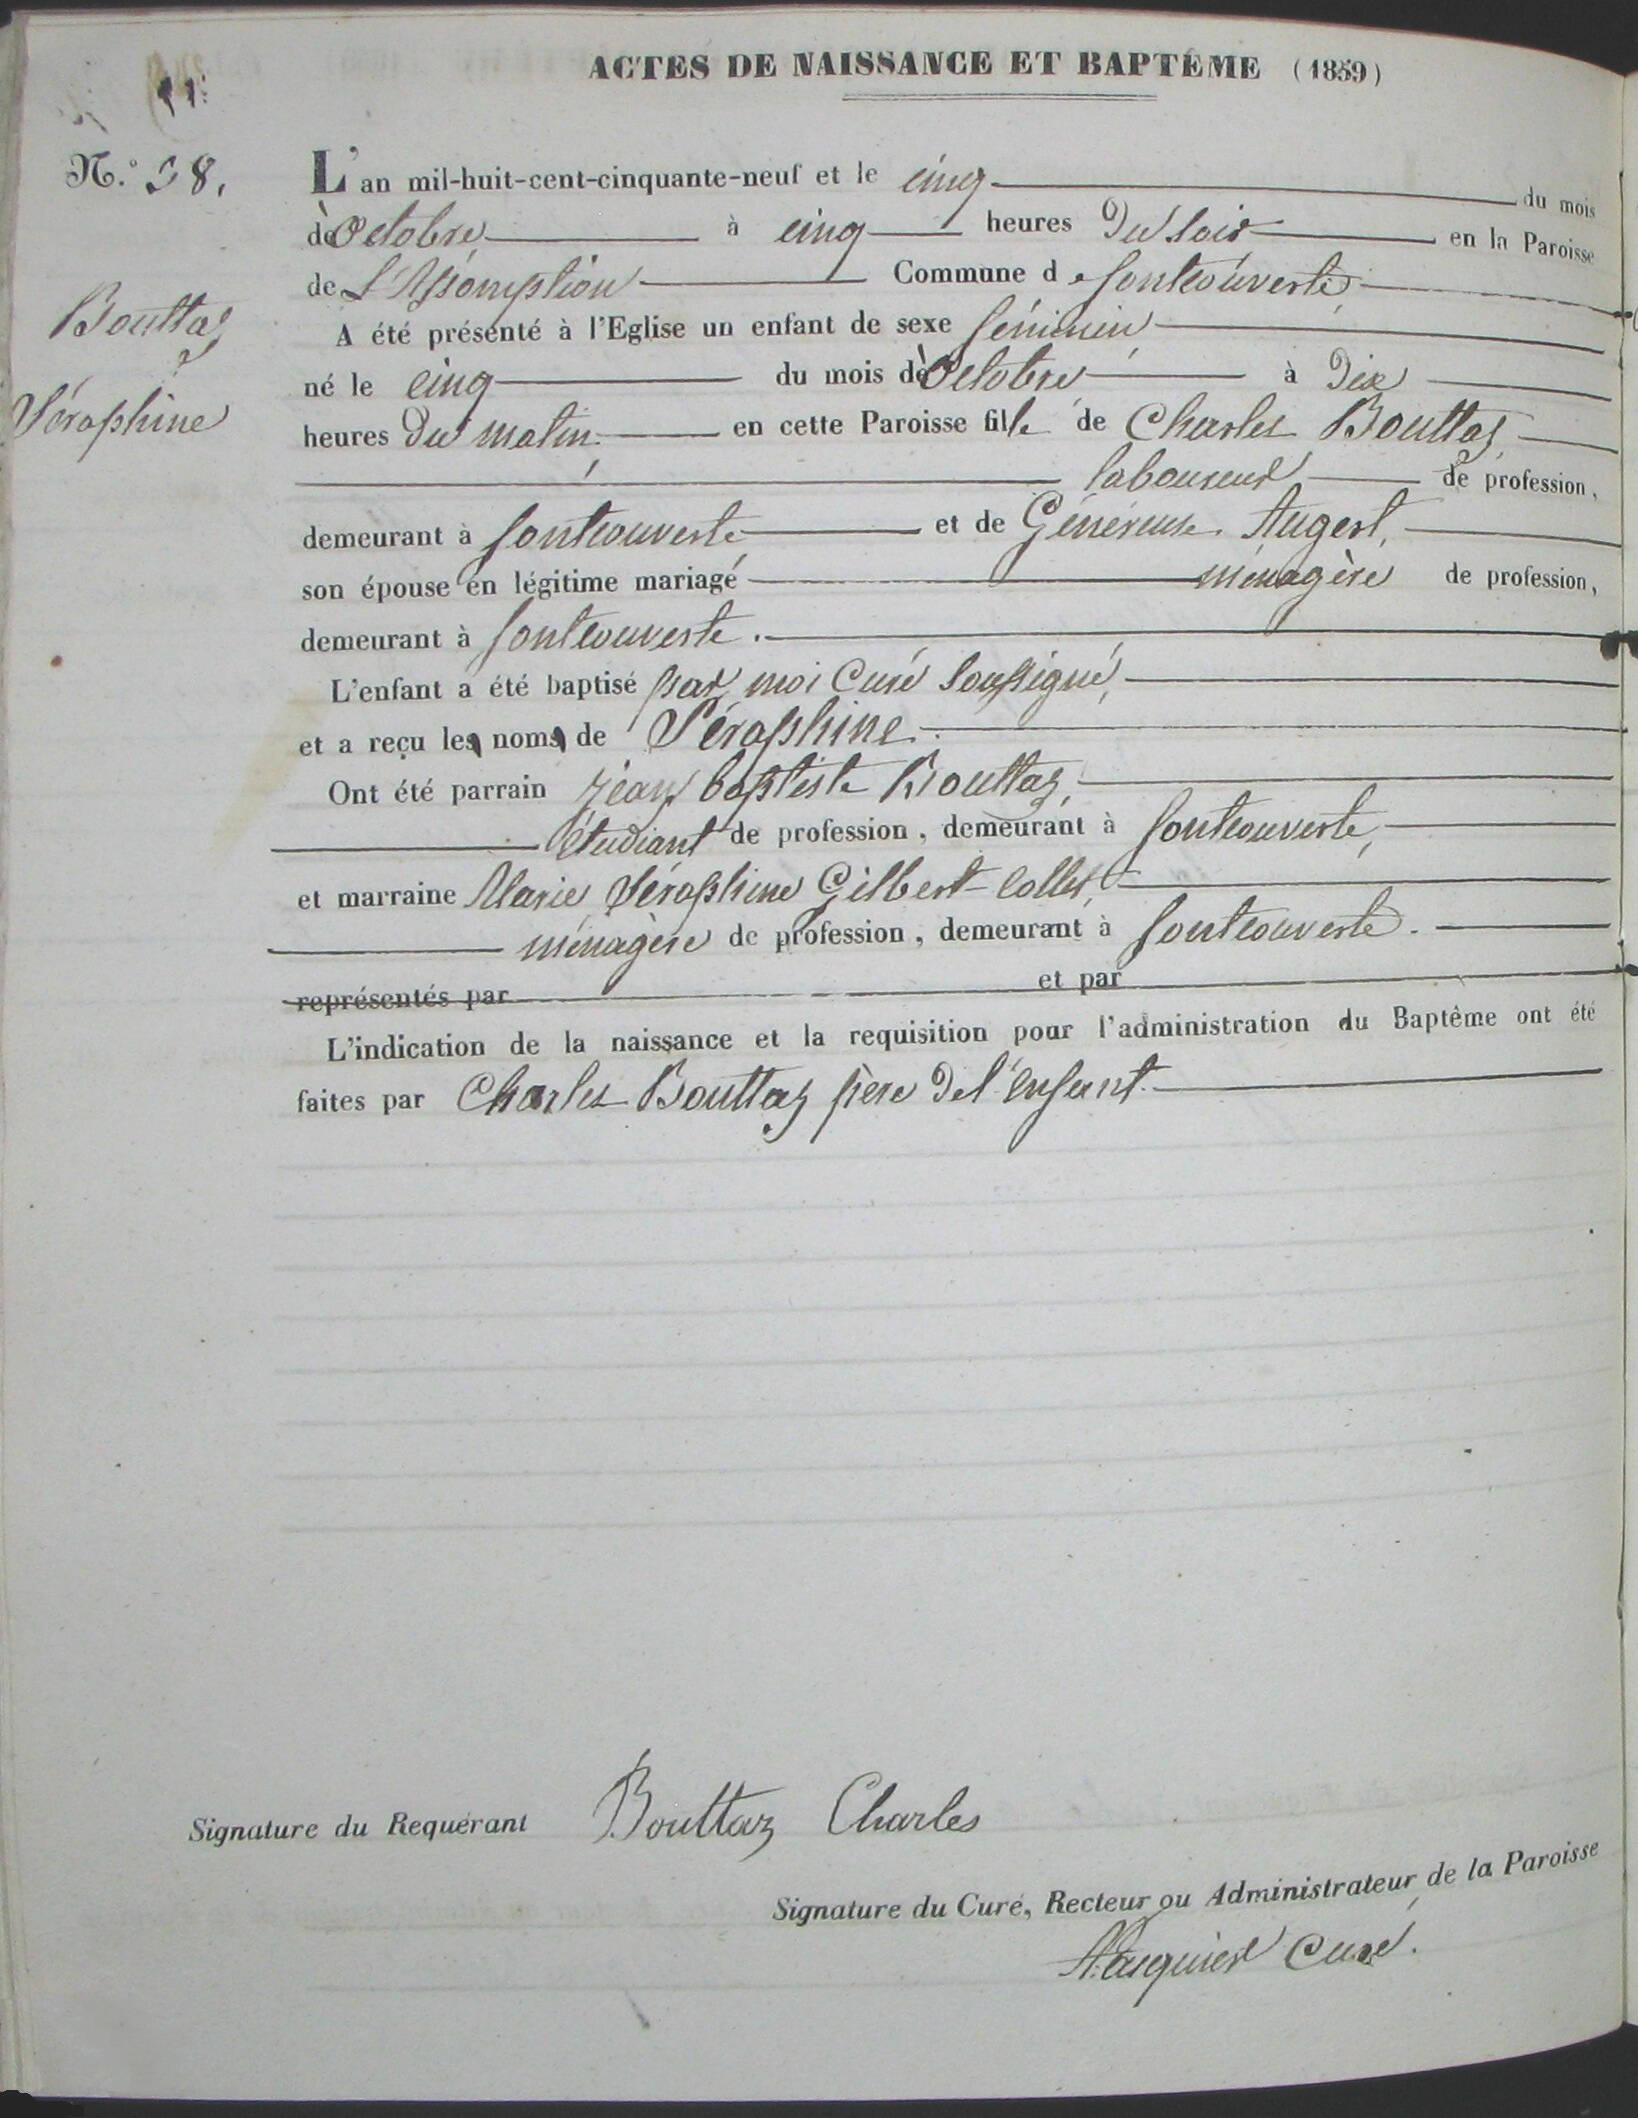 ACTES DE NAISSANCE ET BAPTÊME (1859)
N.º 38.
L'an mil-huit-cent-cinquante-neuf et le cinq du mois
d'octobre à cinq heures du soir en la Paroisse
de L'Assomption Commune de fontcouverte
Bouttaz
Séraphine
A été présenté à l'Eglise un enfant de sexe féminin
né le cinq du mois d'octobre à dix
heures du matin en cette Paroisse fille de Charles Bouttaz
laboureur de profession,
demeurant à fontcouverte et de Généreuse Augert,
son épouse en légitime mariage ménagère de profession,
demeurant à fontcouverte.
L'enfant a été baptisé par moi Curé soussigné,
et a reçu les noms de Séraphine.
Ont été parrain jean baptiste Bouttaz,
étudiant de profession, demeurant à fontcouverte,
et marraine Marie Séraphine Gilbert-Collet,
ménagère de profession, demeurant à fontcouverte.
représentés par et par
L'indication de la naissance et la requisition pour l'administration du Baptême ont été
faites par Charles Bouttaz père de l'enfant.
Signature du Requérant Bouttaz Charles
Signature du Curé, Recteur ou Administrateur de la Paroisse
Curé.